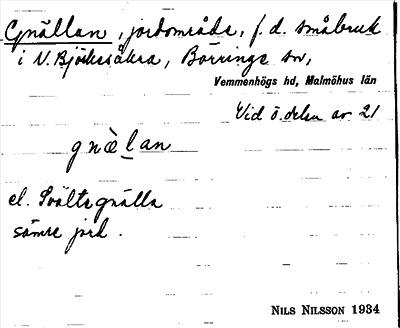 Gnällan, jordområde, f.d. småbruk
i V. Björkesåkra, Börringe sn,
Vemmenhögs hd, Malmöhus län
Vid ö. delen av 21
gnä̀lan
el. Svältegnälla
sämre jord.
NILS NILSSON 1934